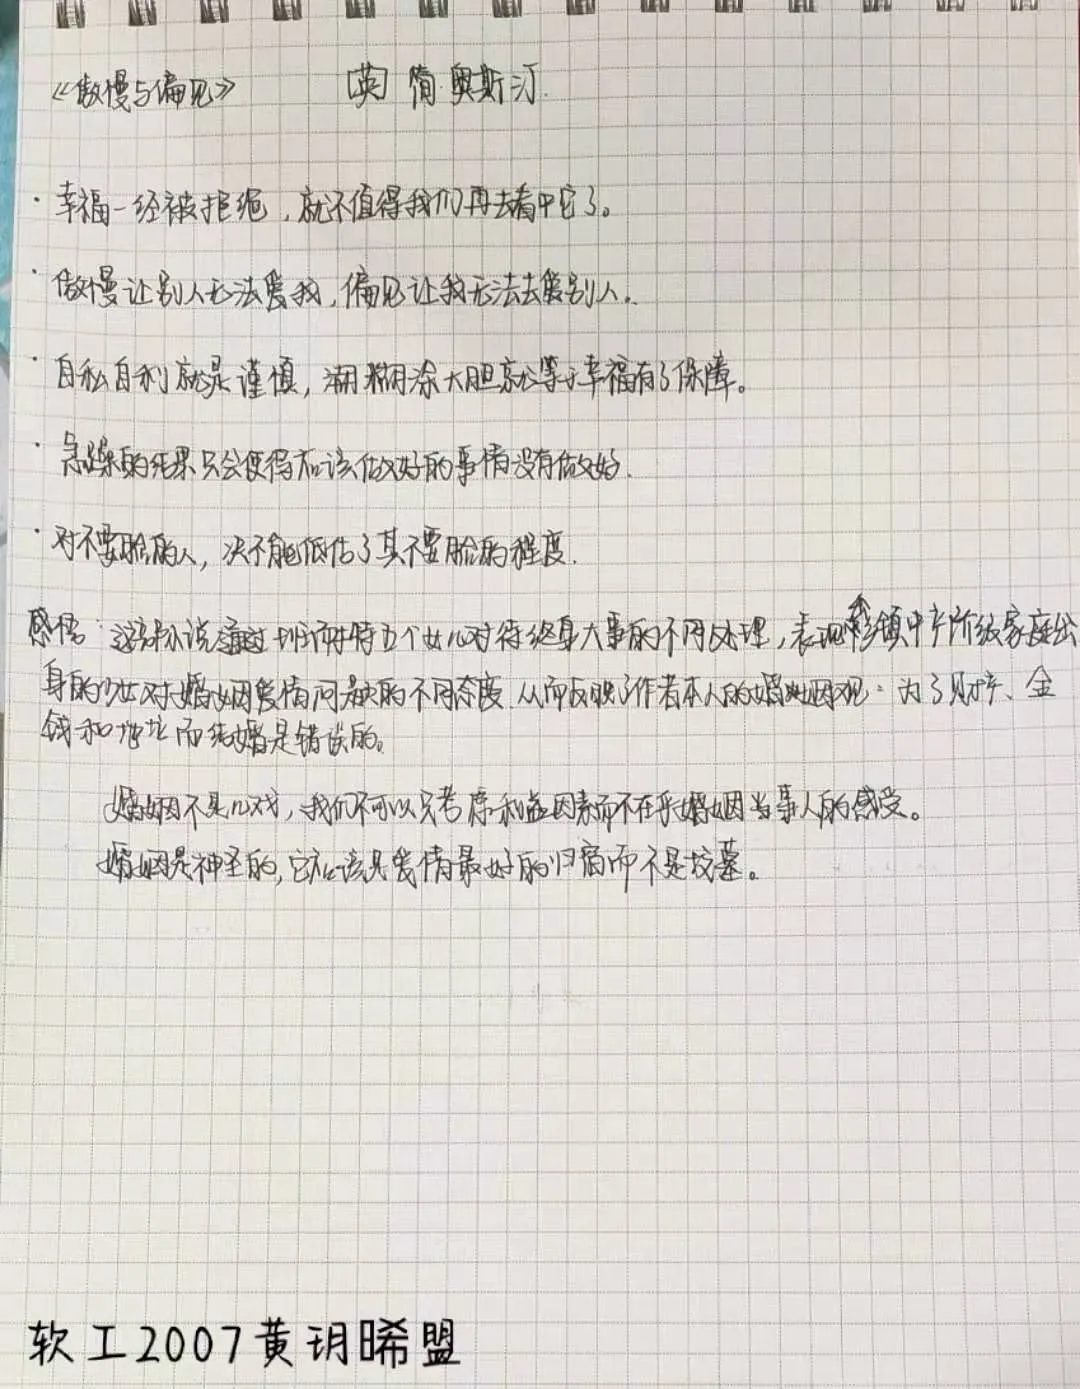 《傲慢与偏见》 [英] 简·奥斯汀.
· 幸福一经被拒绝，就不值得我们再去看中它了。
· 傲慢让别人无法爱我，偏见让我无法去爱别人。
· 自私自利就是谨慎，糊涂大胆就等于幸福有了保障。
· 急躁的结果只会使得应该做好的事情没有做好.
· 对不要脸的人，决不能低估了其不要脸的程度.
感悟：这部小说通过班纳特五个女儿对待终身大事的不同处理，表现乡镇中产阶级家庭出
身的少女对婚姻爱情问题的不同态度.从而反映了作者本人的婚姻观：为了财产、金
钱和地位而结婚是错误的。
婚姻不是儿戏，我们不可以只考虑利益因素而不在乎婚姻当事人的感受。
婚姻是神圣的，它应该是爱情最好的归宿而不是坟墓。
软工2007黄玥晞盟